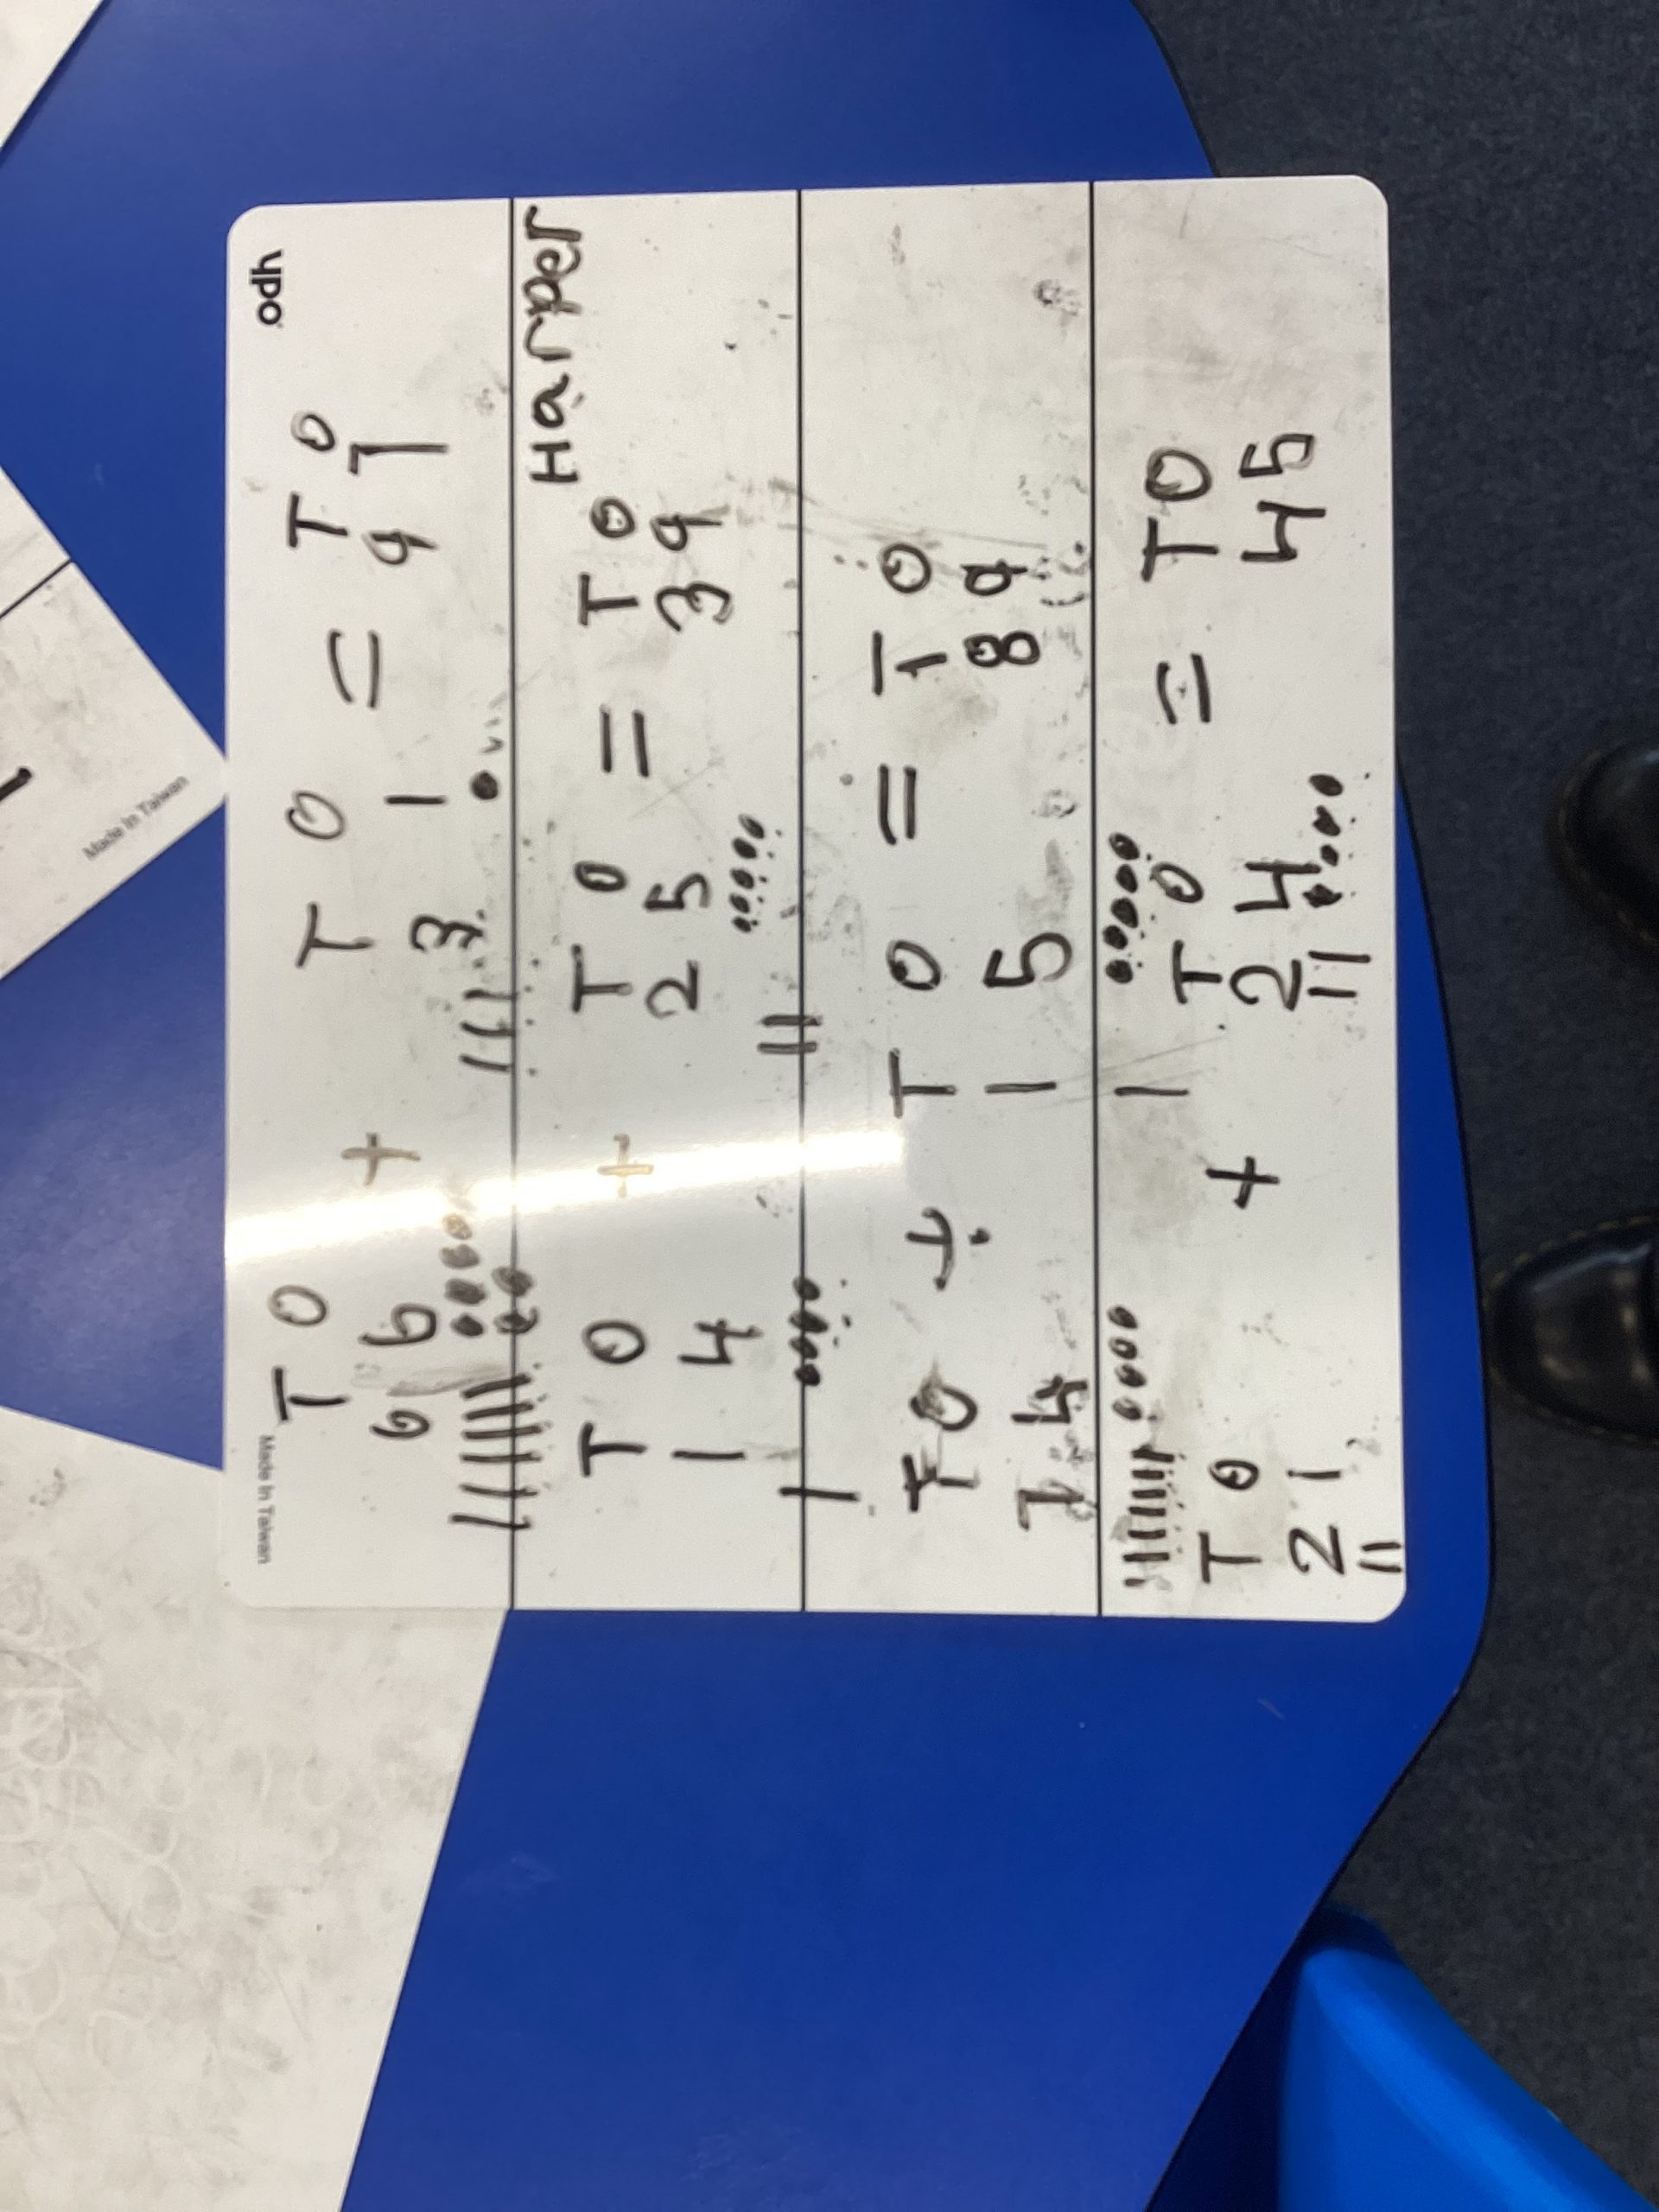 ypo
Made in Taiwan
T O T O T O
6 6 + 3 1 = 9 7
Harper
T O T O T O
1 4 + 2 5 = 3 9
T O T O T O
7 4 + 1 5 = 8 9
T O T O T O
2 1 + 2 4 = 4 5
Made in Taiwan